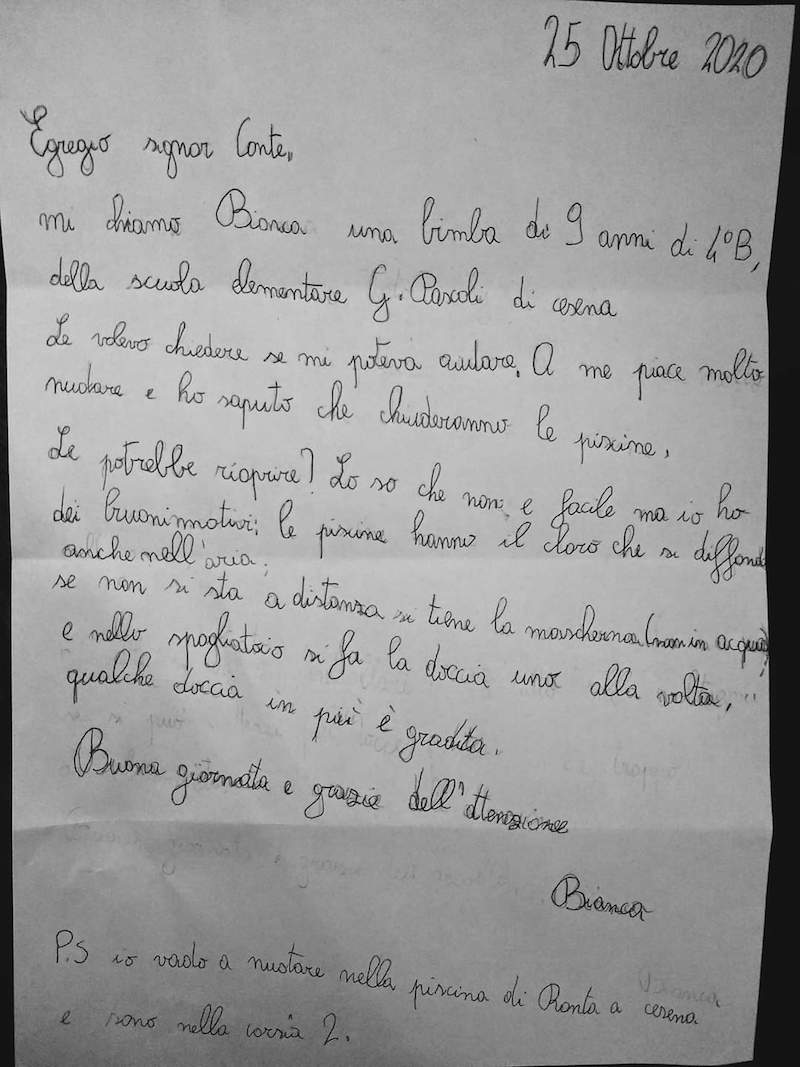 25 Ottobre 2020
Egregio signor Conte,,
mi chiamo Bianca una bimba di 9 anni di 4°B,
della scuola elementare G. Pascoli di cesena
Le volevo chiedere se mi poteva aiutare. A me piace molto
nuotare e ho saputo che chiuderanno le piscine.
Le potrebbe riaprire? Lo so che non e facile ma io ho
dei buoni motivi: le piscine hanno il cloro che si diffonde
anche nell'aria;
se non si sta a distanza si tiene la mascherina (non in acqua)
e nello spogliatoio si fa la doccia uno alla volta,
qualche doccia in più è gradita.
Buona giornata e grazie dell'attenzione
Bianca
P.S io vado a nuotare nella piscina di Ronta a cesena
e sono nella corsia 2.